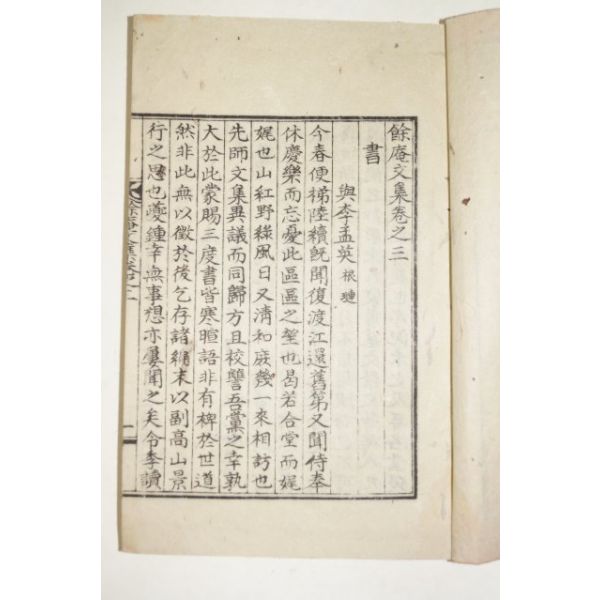 餘庵文集卷之三
書
與李孟英 根璉
今春便梯陸續旣聞復渡江還舊第又聞侍奉
休慶樂而忘憂此區區之望也曷若合堂而娓
娓也山紅野綠風日又清和庶幾一來相訪也
先師文集異議而同歸方且校讐吾黨之幸孰
大於此蒙賜三度書皆寒暄語非有裨於世道
然非此無以徵於後乞存諸編末以副高山景
行之思也夔鍾幸無事想亦屢聞之矣令季讀
餘庵文集卷之三